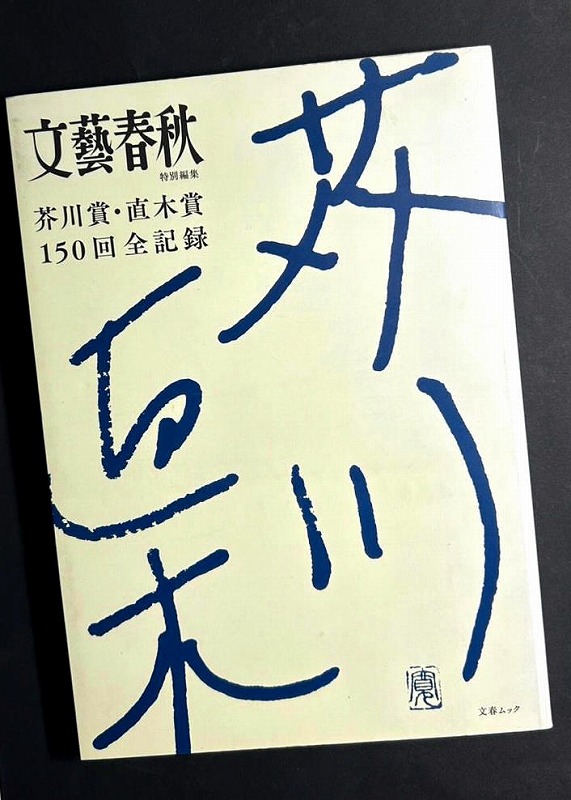 文藝春秋
特別編集
芥川賞・直木賞
150回全記録
芥川
直木
寛
文春ムック